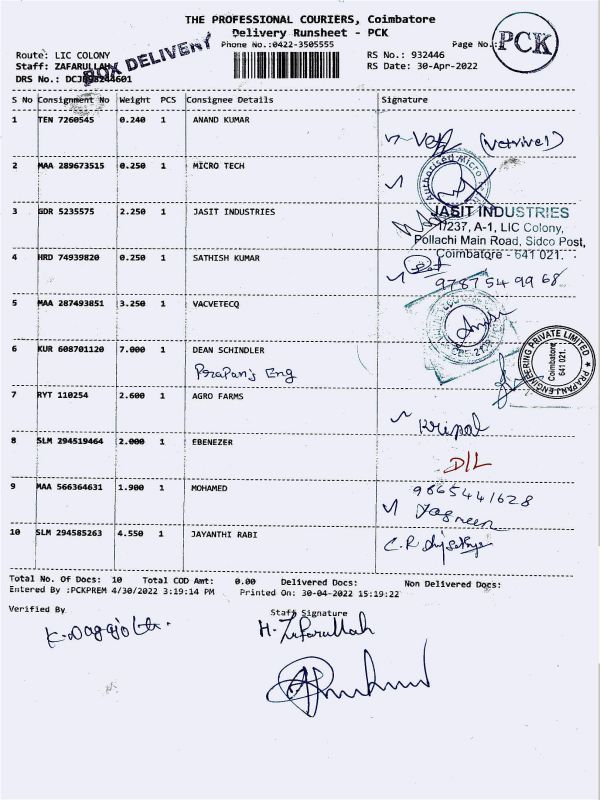 THE PROFESSIONAL COURIERS, Coimbatore
Delivery Runsheet - PCK
Phone No.:0422-3505555
Page No.:1
PCK
Route: LIC COLONY
Staff: ZAFARULLAH
BOX DELIVERY
RS No.: 932446
RS Date: 30-Apr-2022
DRS No.:
S No Consignment No Weight PCS Consignee Details Signature
1 TEN 7260545 0.240 1 ANAND KUMAR
(Vetrivel)
2 MAA 289673515 0.250 1 MICRO TECH
Authorised Micro
3 GDR 5235575 2.250 1 JASIT INDUSTRIES
JASIT INDUSTRIES
1/237, A-1, LIC Colony,
Pollachi Main Road, Sidco Post,
Coimbatore - 641 021.
4 HRD 74939820 0.250 1 SATHISH KUMAR
9787549968
5 MAA 287493851 3.250 1 VACVETECQ
6 KUR 608701120 7.000 1 DEAN SCHINDLER
Prapanj Eng
PRAPANJ ENGINEERING PRIVATE LIMITED
Coimbatore
641 021.
7 RYT 110254 2.600 1 AGRO FARMS
Kripal
8 SLM 294519464 2.000 1 EBENEZER
D/L
9 MAA 566364631 1.900 1 MOHAMED
9865441628
10 SLM 294585263 4.550 1 JAYANTHI RABI
Total No. Of Docs: 10 Total COD Amt: 0.00 Delivered Docs: Non Delivered Docs:
Entered By :PCKPREM 4/30/2022 3:19:14 PM Printed On: 30-04-2022 15:19:22
Verified By
Staff Signature
H. Zafarullah